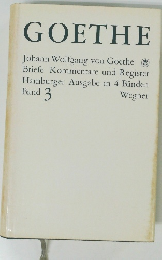 GOETHE
Johann Wolfgang von Goethe
Briefe Kommentare und Register
Hamburger Ausgabe in 4 Bänden
Band 3 Wegner